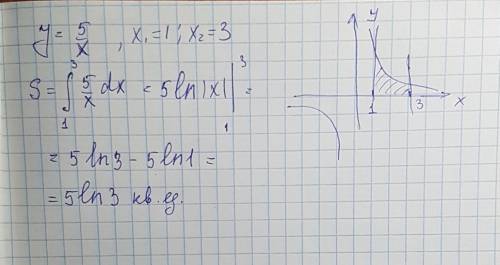 y = 5/x , x₁=1 ; x₂=3
S = ∫₁³ 5/x dx = 5 ln|x| |₁³ =
= 5 ln3 - 5 ln1 =
= 5 ln3 кв.ед.
y
1
3
x